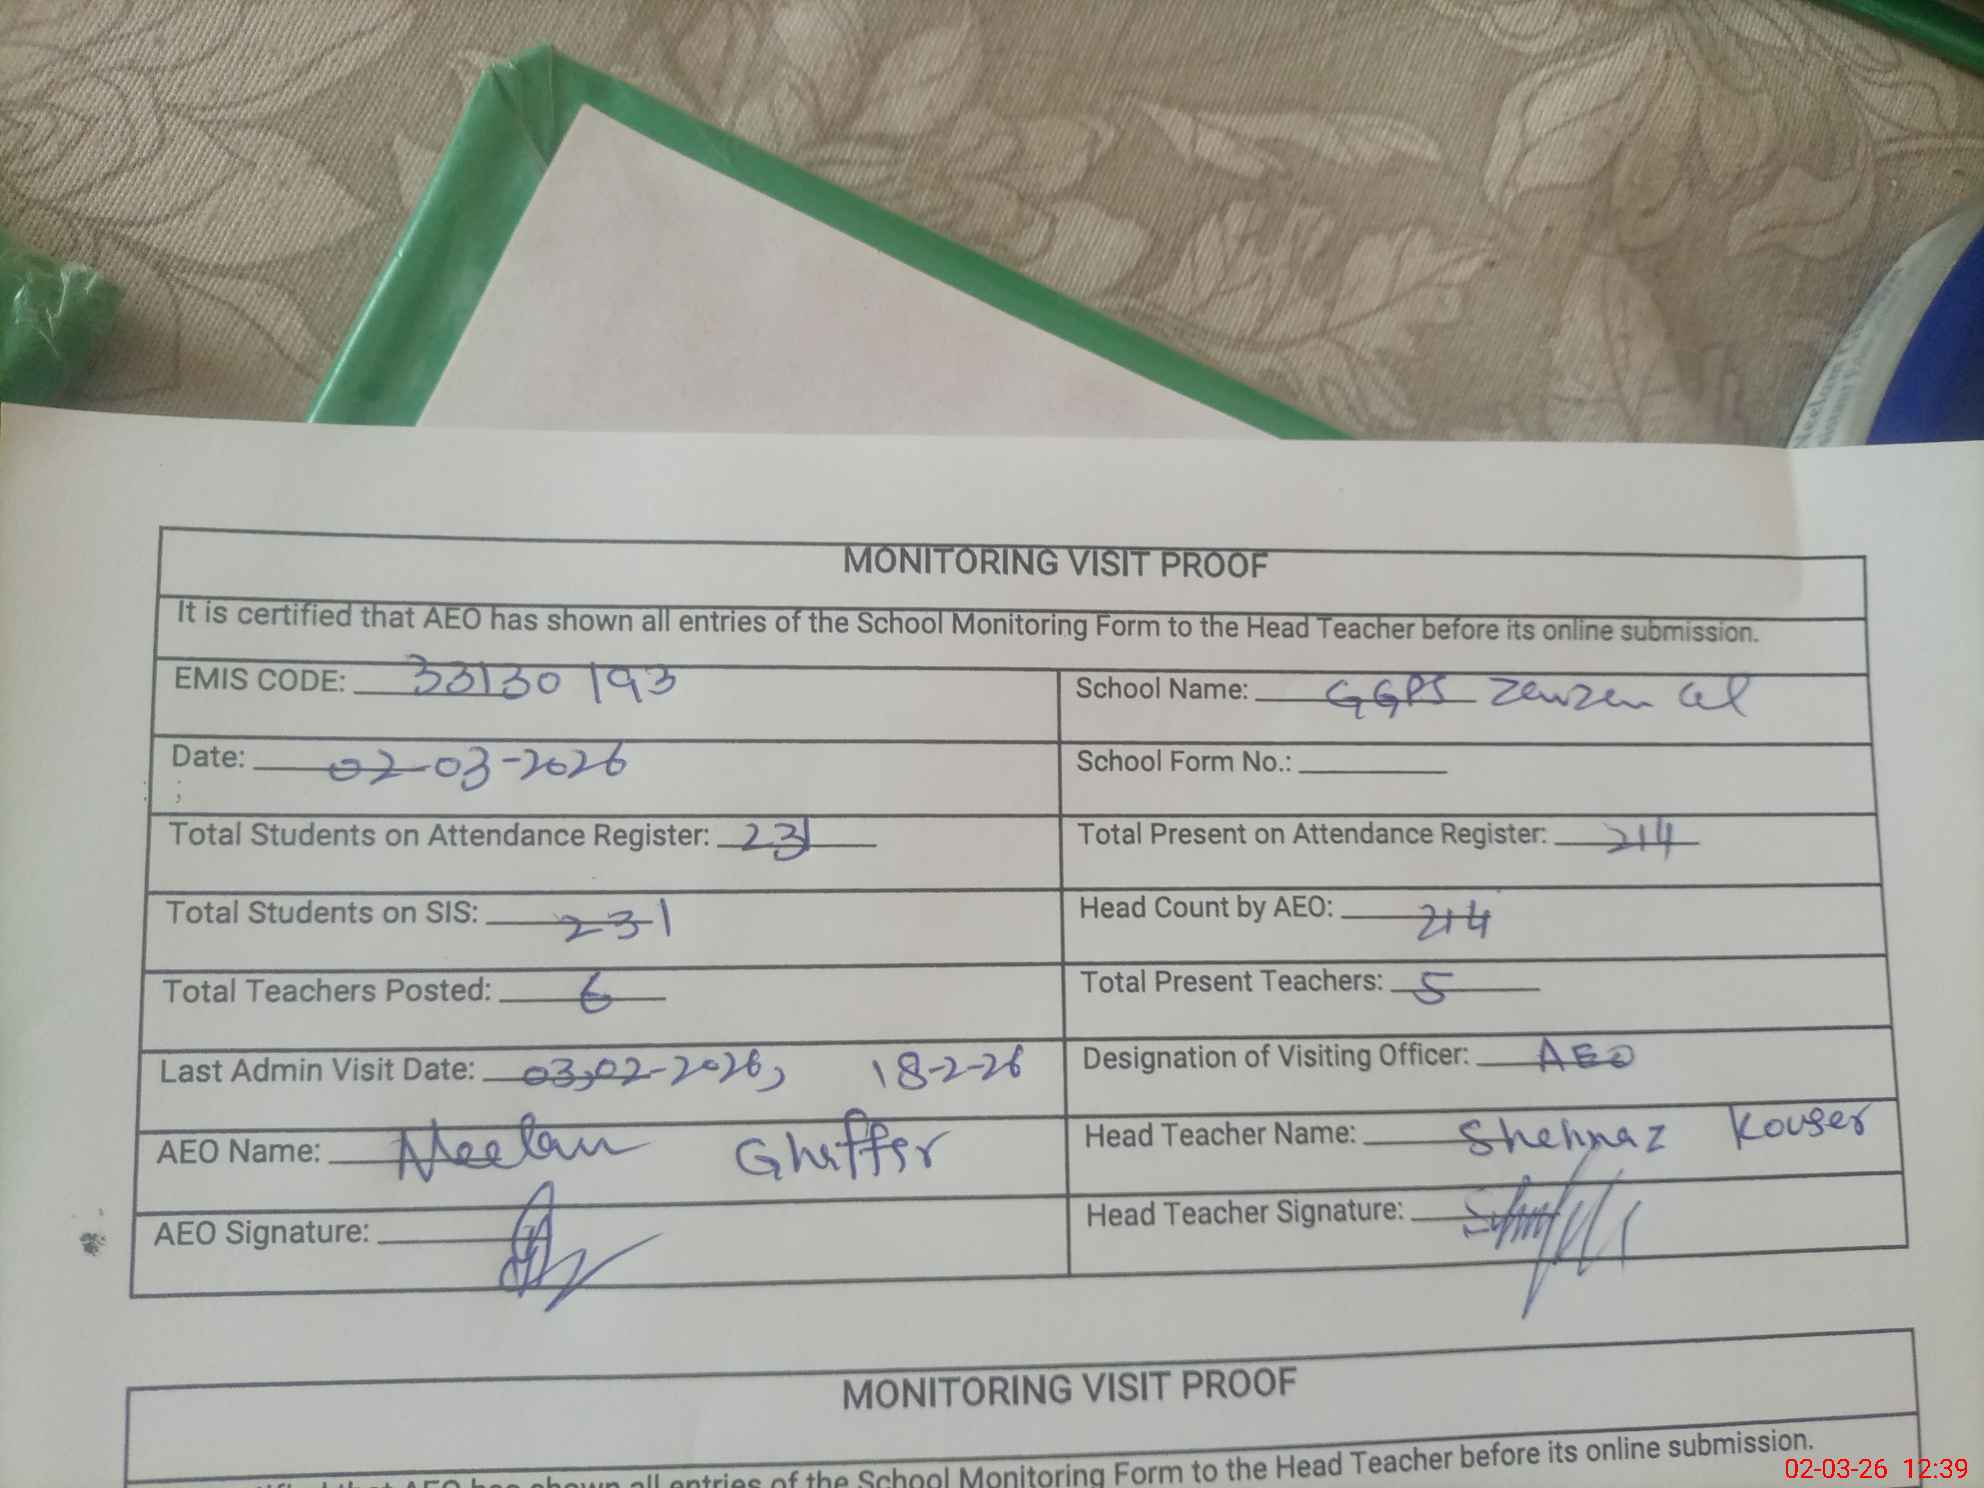 MONITORING VISIT PROOF
It is certified that AEO has shown all entries of the School Monitoring Form to the Head Teacher before its online submission.
EMIS CODE: 33130193
School Name: GGPS
Date: 02-03-2026
School Form No.:
Total Students on Attendance Register: 231
Total Present on Attendance Register: 214
Total Students on SIS: 231
Head Count by AEO: 214
Total Teachers Posted: 6
Total Present Teachers: 5
Last Admin Visit Date: 03,02-2026, 18-2-26
Designation of Visiting Officer: AEO
AEO Name: Neelam Ghaffar
Head Teacher Name: Shehnaz Kouser
AEO Signature:
Head Teacher Signature:
MONITORING VISIT PROOF
all entries of the School Monitoring Form to the Head Teacher before its online submission.
02-03-26 12:39